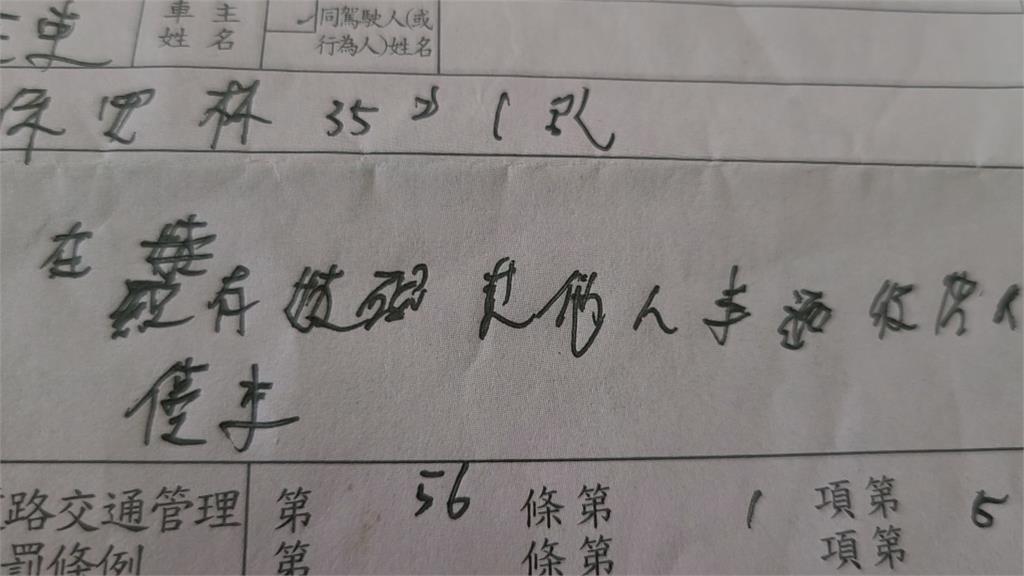 車主 同駕駛人(或
姓名 行為人)姓名
林 35之1號
在顯有妨礙其他人車通行處
停車
路交通管理 第 56 條第 1 項第 5
罰條例 第 條第 項第